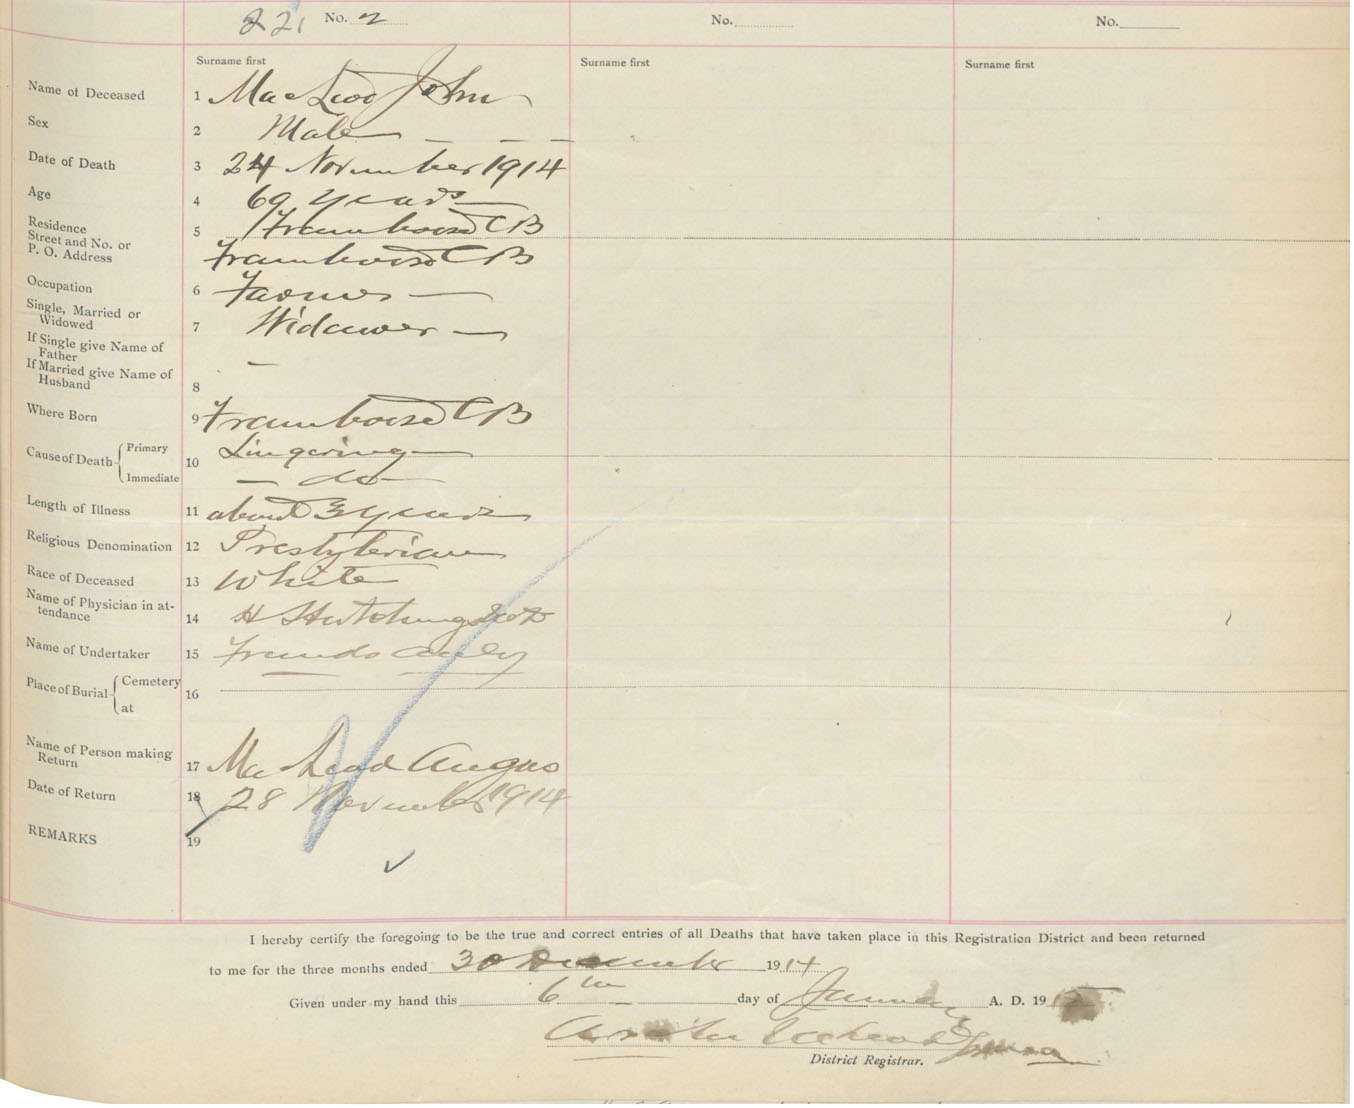 221 No. 2 No. No.
Surname first Surname first Surname first
Name of Deceased 1 MacLeod John
Sex 2 Male
Date of Death 3 24 November 1914
Age 4 69 years
Residence
Street and No. or
P. O. Address 5 Framboise CB
Framboise CB
Occupation 6 Farmer
Single, Married or
Widowed 7 Widower
If Single give Name of
Father
If Married give Name of
Husband 8
Where Born 9 Framboise CB
Cause of Death Primary 10 Lingering
Immediate do
Length of Illness 11 about 3 years
Religious Denomination 12 Presbyterian
Race of Deceased 13 White
Name of Physician in at-
tendance 14 H
Name of Undertaker 15 Friends
Place of Burial Cemetery 16
at
Name of Person making
Return 17 MacLeod Angus
Date of Return 18 28 November 1914
REMARKS 19
I hereby certify the foregoing to be the true and correct entries of all Deaths that have taken place in this Registration District and been returned
to me for the three months ended 30 December 1914
Given under my hand this 6th day of January A. D. 19
District Registrar.